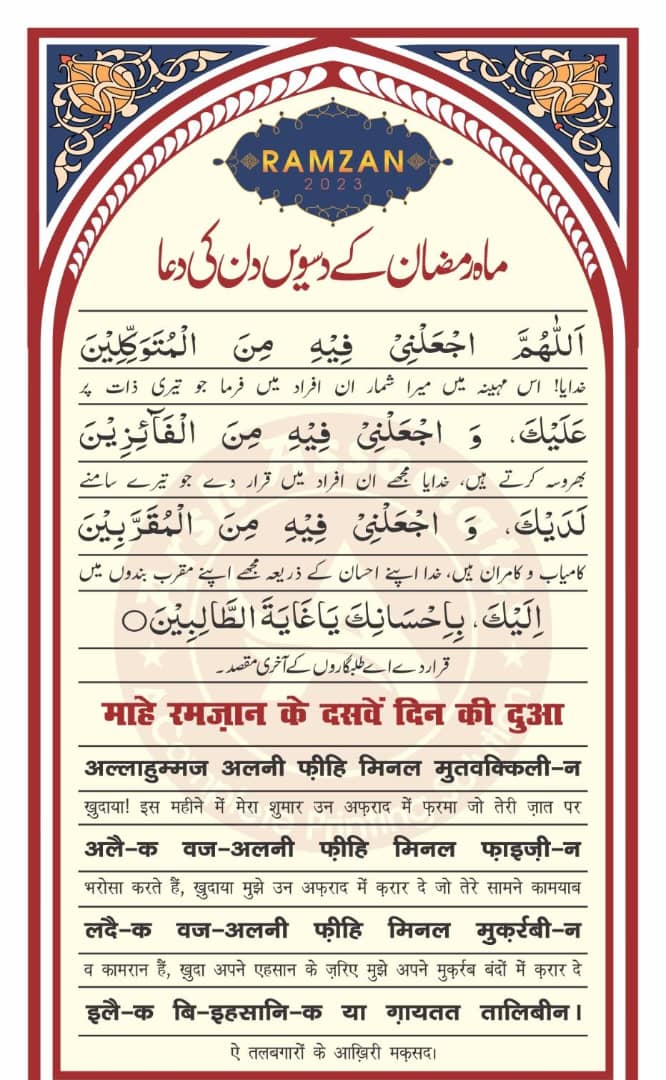 RAMZAN
2023
ماہ رمضان کے دسویں دن کی دعا
اَللّٰهُمَّ اجْعَلْنِیْ فِیْهِ مِنَ الْمُتَوَكِّلِیْنَ
خدایا! اس مہینہ میں میرا شمار ان افراد میں فرما جو تیری ذات پر
عَلَیْكَ، وَ اجْعَلْنِیْ فِیْهِ مِنَ الْفَآئِزِیْنَ
بھروسہ کرتے ہیں، خدایا مجھے ان افراد میں قرار دے جو تیرے سامنے
لَدَیْكَ، وَ اجْعَلْنِیْ فِیْهِ مِنَ الْمُقَرَّبِیْنَ
کامیاب و کامران ہیں، خدا اپنے احسان کے ذریعہ مجھے اپنے مقرب بندوں میں
اِلَیْكَ، بِاِحْسَانِكَ یَاغَایَةَ الطَّالِبِیْنَ○
قرار دے اے طلبگاروں کے آخری مقصد۔
माहे रमज़ान के दसवें दिन की दुआ
अल्लाहुम्मज अलनी फ़ीहि मिनल मुतवक्किली-न
ख़ुदाया! इस महीने में मेरा शुमार उन अफ़राद में फ़रमा जो तेरी ज़ात पर
अलै-क वज-अलनी फ़ीहि मिनल फ़ाइज़ी-न
भरोसा करते हैं, ख़ुदाया मुझे उन अफ़राद में क़रार दे जो तेरे सामने कामयाब
लदै-क वज-अलनी फ़ीहि मिनल मुक़र्रबी-न
व कामरान हैं, ख़ुदा अपने एहसान के ज़रिए मुझे अपने मुक़र्रब बंदों में क़रार दे
इलै-क बि-इहसानि-क या ग़ायतत तालिबीन।
ऐ तलबगारों के आख़िरी मक़सद।